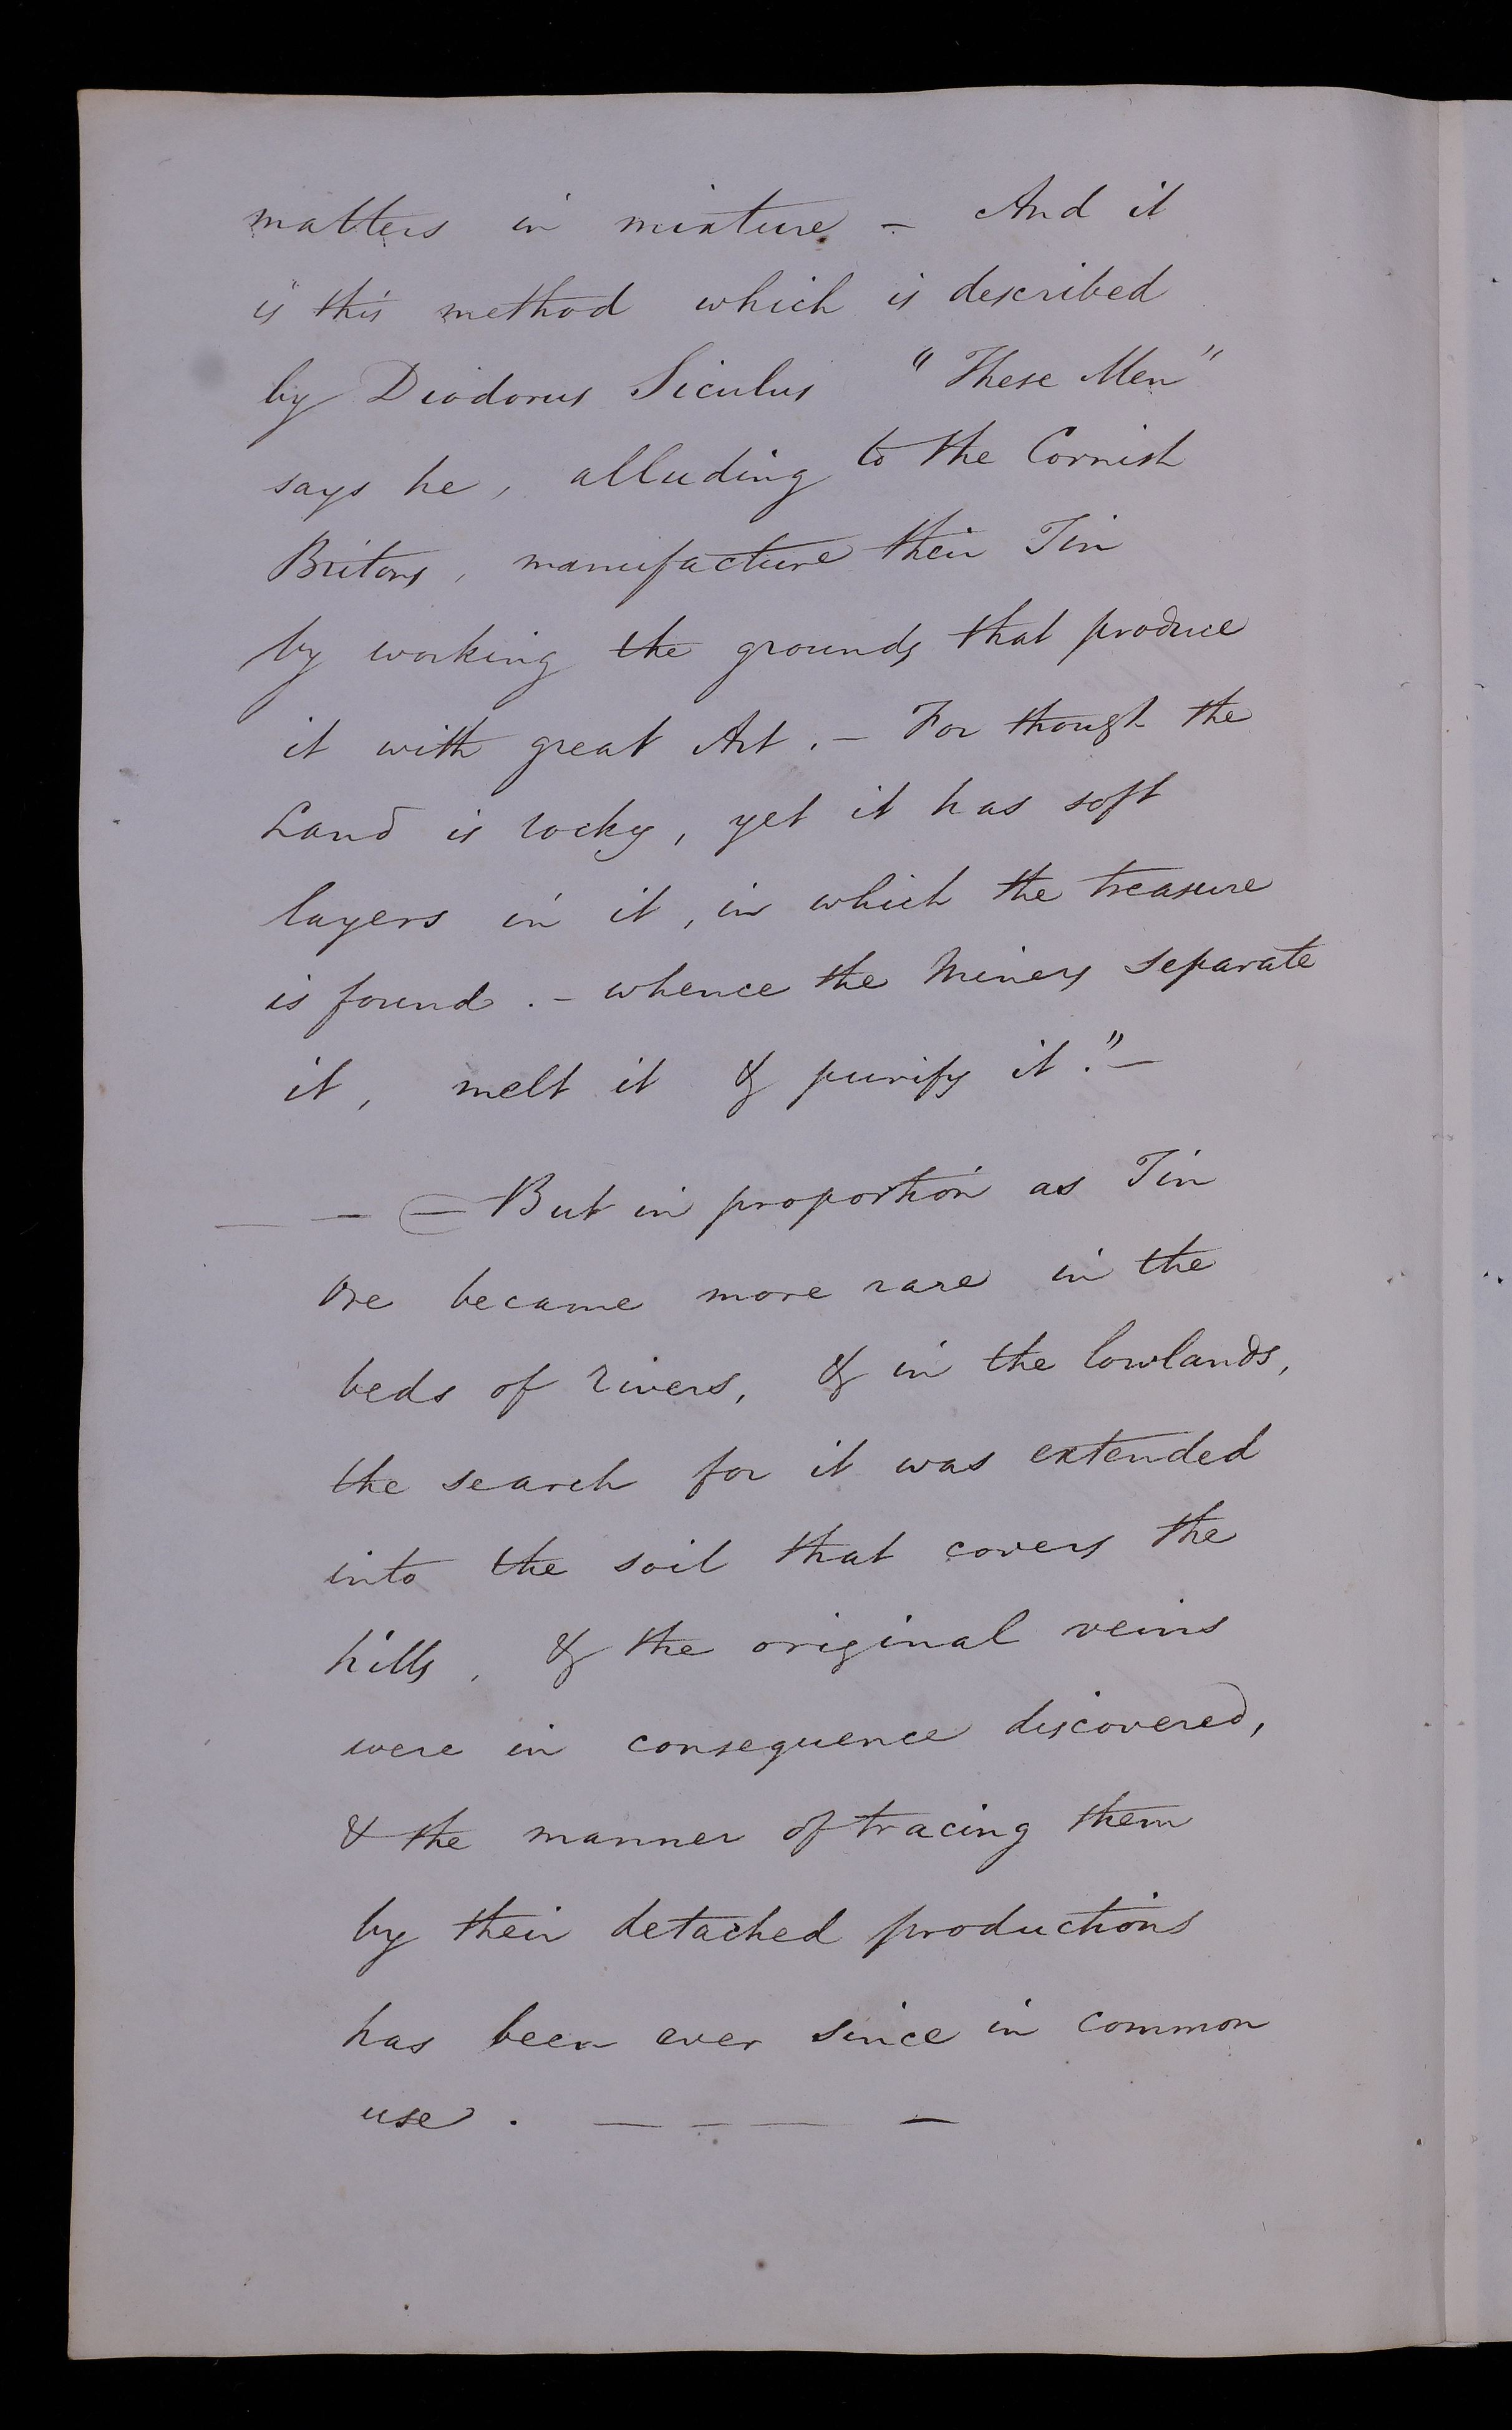 matters in mixture - And it
is this method which is described
by Diodorus Siculus "These Men"
says he, alluding to the Cornish
Britons, manufacture their Tin
by working the grounds that produce
it with great Art. - For though the
Land is rocky, yet it has soft
layers in it, in which the treasure
is found. - whence the Miners separate
it, melt it & purify it." -
— — — But in proportion as Tin
Ore became more rare in the
beds of rivers, & in the lowlands,
the search for it was extended
into the soil that covers the
hills, & the original veins
were in consequence discovered,
& the manner of tracing them
by their detached productions
has been ever since in common
use. — — — —